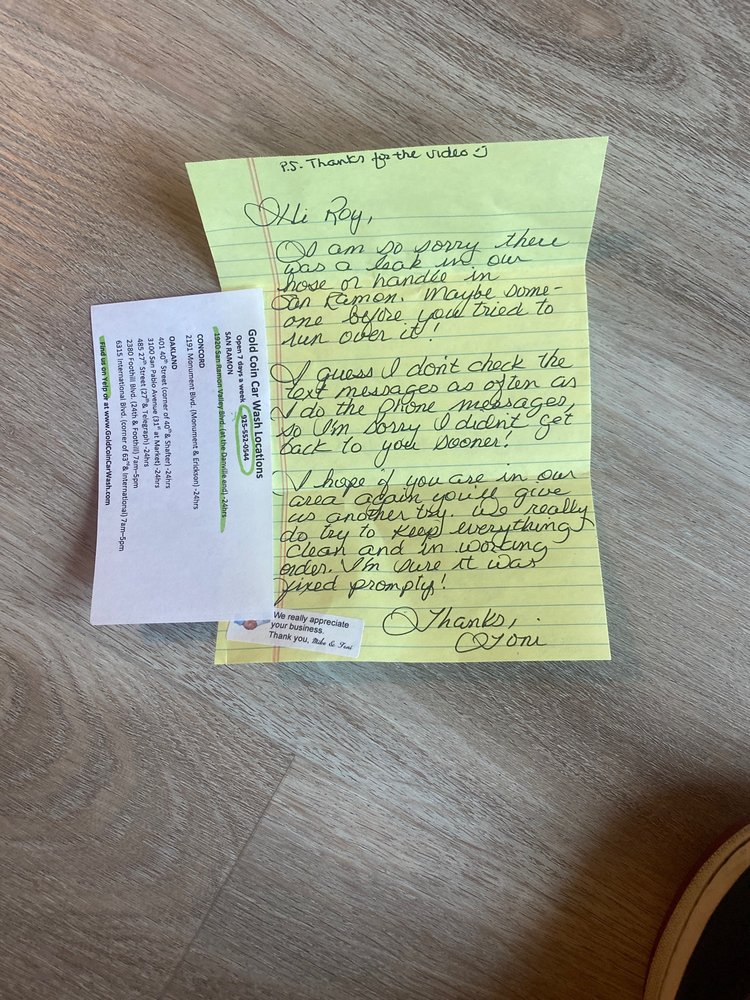 P.S. Thanks for the video
Hi Roy,
I am so sorry there
was a leak in our
hose or handle in
San Ramon. Maybe some-
one before you tried to
run over it!
I guess I don't check the
text messages as often as
I do the phone messages,
so I'm sorry I didn't get
back to you sooner!
I hope if you are in our
area again you'll give
us another try. We really
do try to keep everything
clean and in working
order. I'm sure it was
fixed promply!
Thanks,
Toni
We really appreciate
your business.
Thank you, Mike & Toni
Gold Coin Car Wash Locations
Open 7 days a week 925-552-0544
SAN RAMON
1920 San Ramon Valley Blvd. (at the Danville end) -24hrs
CONCORD
2191 Monument Blvd. (Monument & Erickson) -24hrs
OAKLAND
401 40th Street (corner of 40th & Shafter) -24hrs
3100 San Pablo Avenue (31st at Market) -24hrs
485 27th Street (27th & Telegraph) -24hrs
2380 Foothill Blvd. (24th & Foothill) 7am–5pm
6315 International Blvd. (corner of 63rd & International) 7am–5pm
Find us on Yelp or at www.GoldCoinCarWash.com